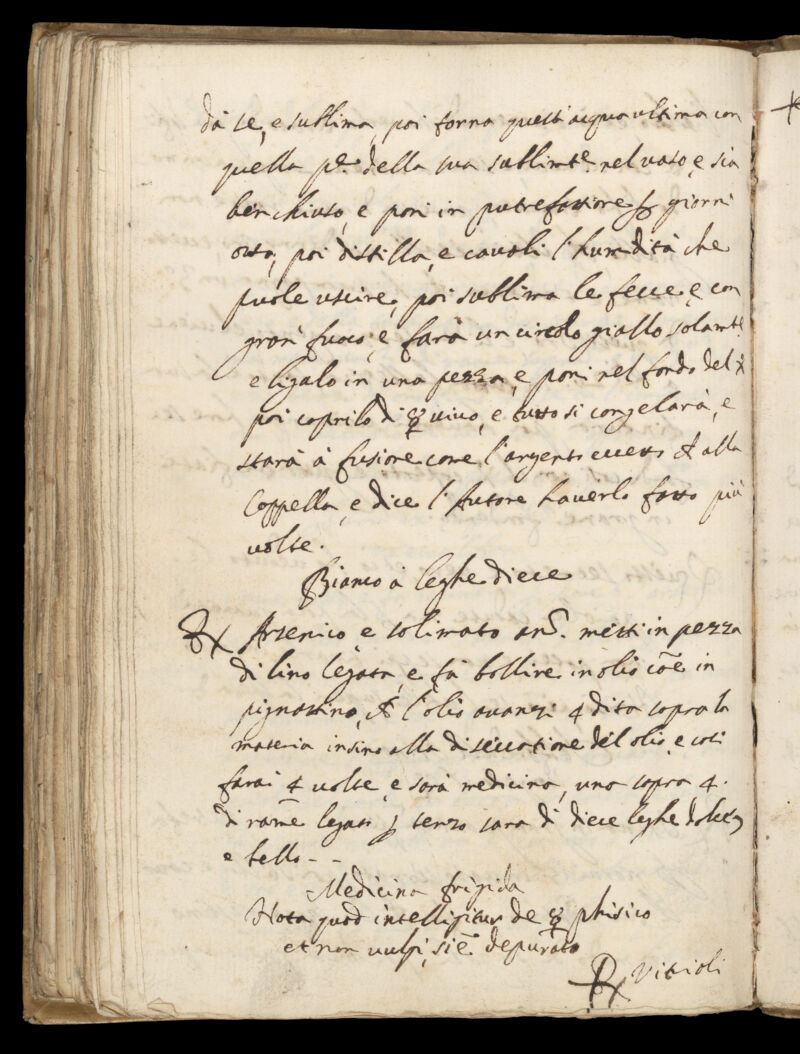 dà se, e sublima, poi torna quest'acqua ultima con
quella p.ª della sua sublimt.e nel uaso, e sia
ben chiuso, e poni in putrefattione giorni
otto, poi distilla, e cauali l'humidità che
puole uscire, poi sublima le fecce, e con
gran fuoco, e farà un circolo giallo solamt.e
e ligalo in una pezza, e poni nel fondo del
poi coprilo di ☿ uiuo, e tutto si congelarà, e
starà à fusione come l'argento alla
Coppella, e dice l'Autore hauerlo fatto più
uolte.
Bianco à leghe diece
℞ Arsenico, e solimato anã. metti in pezza
di lino legata, e fà bollire in olio cõe in
pignattino, l'olio auanzi 4 dita sopra la
materia insino alla disseccatione del olio, e così
farai 4 uolte, e sarà medicina, una sopra 4.
di rame legati sarà di diece leghe dolce,
e bello - -
Medicina frigida
Nota quod intelligitur de ☿ phisico
et non uulgi, depurato
℞ Vitrioli